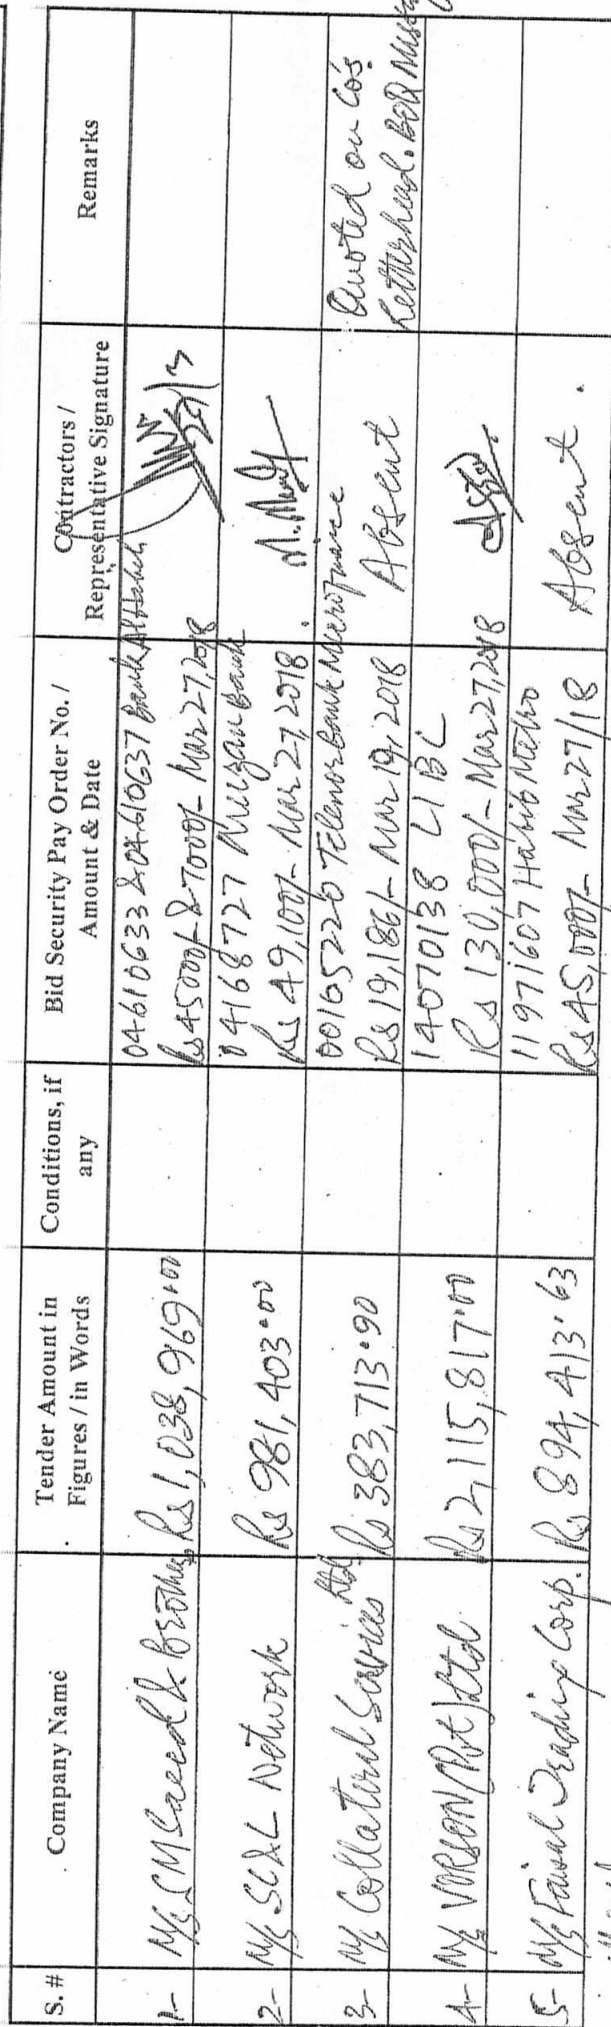 S. #
Company Name
Tender Amount in
Figures / in Words
Conditions, if
any
Bid Security Pay Order No. /
Amount & Date
Contractors /
Representative Signature
Remarks
1- M/s SM Saeed & Brothers Rs 1,038,969.00 04610633 & 04610637 Bank
Rs 45000/- & 7000/- Mar 27, 2018
2- M/s SC&L Network Rs 981,403.00 04168727 Meezan Bank
Rs 49,100/- Mar 27, 2018
3- M/s Collateral Services Ltd Rs 383,713.90 00165220 Telenor Bank Microfinance Quoted on Co's
Rs 19,186/- Mar 19, 2018 Absent Letterhead. BOQ
4- M/s VORSON (Pvt) Ltd Rs 2,115,817.00 14070138 UBL
Rs 130,000/- Mar 27, 2018
5- M/s Faisal Trading Corp. Rs 894,413.63 11971607 Habib Metro
Rs 45,000/- Mar 27/18 Absent.